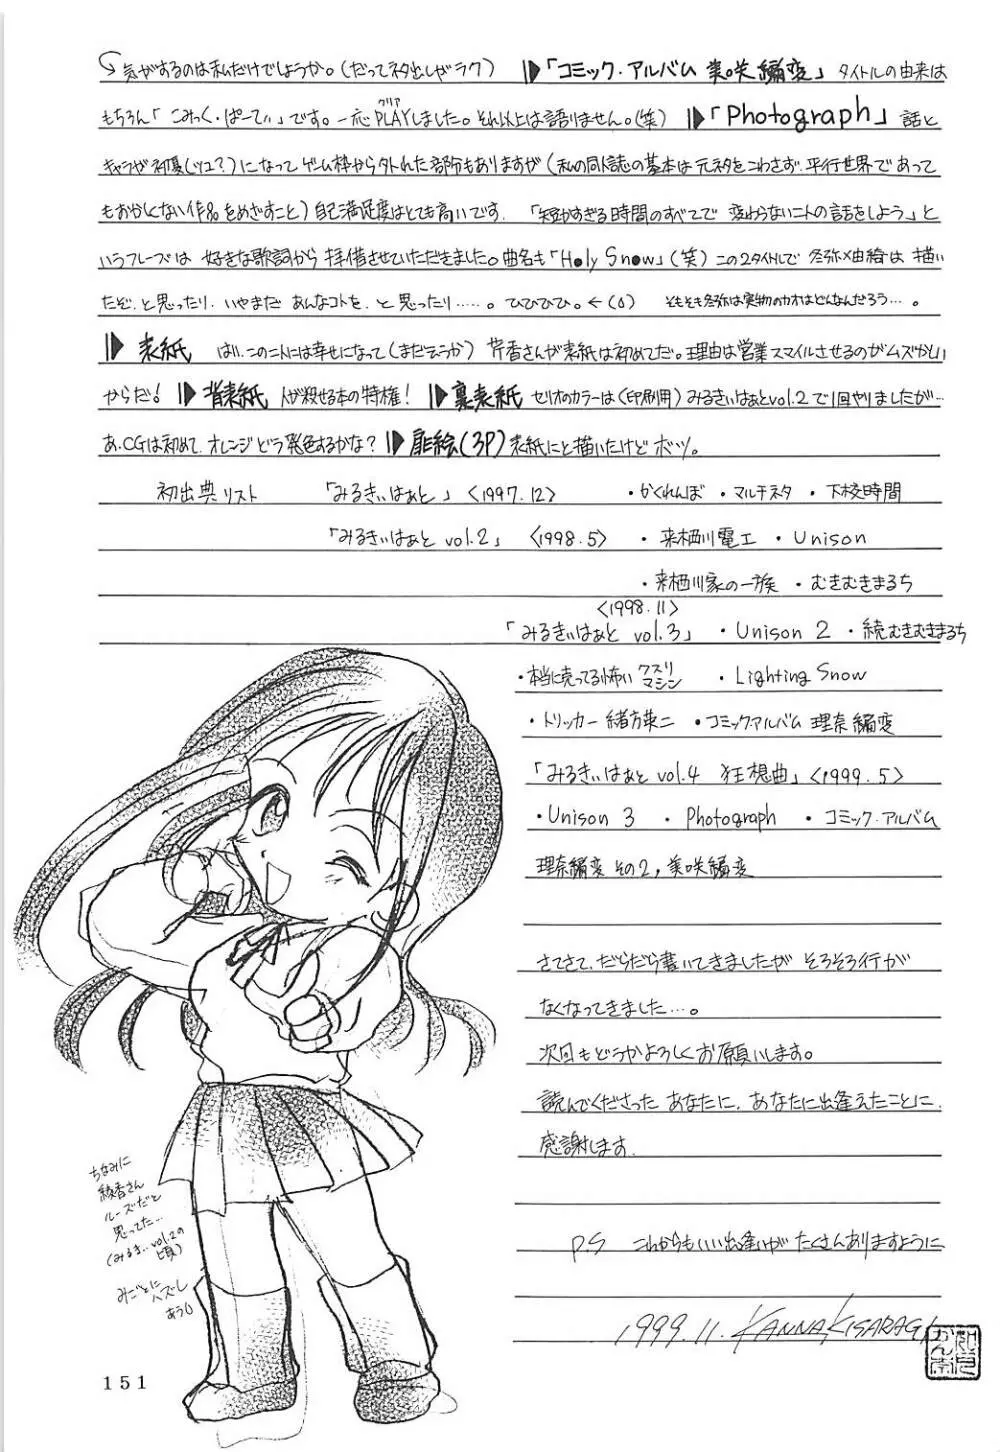 気がするのは私だけでしょうか。(だってネタ出しがラク) 「コミック・アルバム 美咲編変」 タイトルの由来は
もちろん「こみっく・ぱーてぃ」です。一応PLAYしました。それ以上は語りません。(笑) 「Photograph」 話と
クリア
キャラが初優(ツユ?)になってゲーム枠から外れた部分もありますが(私の同人誌の基本は元ネタをこわさず、平行世界であって
もおかしくない作品をめざすこと)自己満足度はとても高いです。「短かすぎる時間のすべてで 変わらない二人の話をしよう」と
いうフレーズは 好きな歌詞から 拝借させていただきました。曲名も「Holy Snow」(笑) この2タイトルで 冬弥×由綺は 描い
たぞ、と思ったり、いやまだ あんなコトを、と思ったり……。ひひひひ。← そもそも冬弥は実物のカオはどんなんだろう…。
表紙 はい、この二人には幸せになって(まだそうか) 芹香さんが表紙は初めてだ。理由は営業スマイルさせるのがムズかしい
からだ! 背表紙 人が殺せる本の特権! 裏表紙 セリオのカラーは(印刷用)みるきぃはぁとvol.2で1回やりましたが…
あ、CGは初めて、オレンジどう発色するかな? 扉絵(3P) 表紙にと描いたけど ボツ。
初出典リスト 「みるきぃはぁと」<1997.12> ・かくれんぼ ・マルチネタ ・下校時間
「みるきぃはぁと vol.2」 <1998.5> ・来栖川電工 ・Unison
・来栖川家の一族 ・むきむきまるち
<1998.11>
「みるきぃはぁと vol.3」 ・Unison 2 ・続むきむきまるち
・本当に売ってる怖い クスリ マシン ・Lighting Snow
・トリッカー 緒方英二 ・コミックアルバム 理奈編変
「みるきぃはぁと vol.4 狂想曲」<1999.5>
・Unison 3 ・Photograph ・コミック・アルバム
理奈編変 その2, 美咲編変
さてさて、だらだら書いてきましたが そろそろ行が
なくなってきました…。
次回もどうかよろしくお願いします。
読んでくださった あなたに、あなたに出逢えたことに、
感謝します。
P.S これからもいい出逢いが たくさんありますように
1999.11. KANNA KISARAGI
ちなみに
綾香さん
ルーズだと
思ってた…
(みるき‥vol.2の
頃)
みごとに
ハズし
あう
151